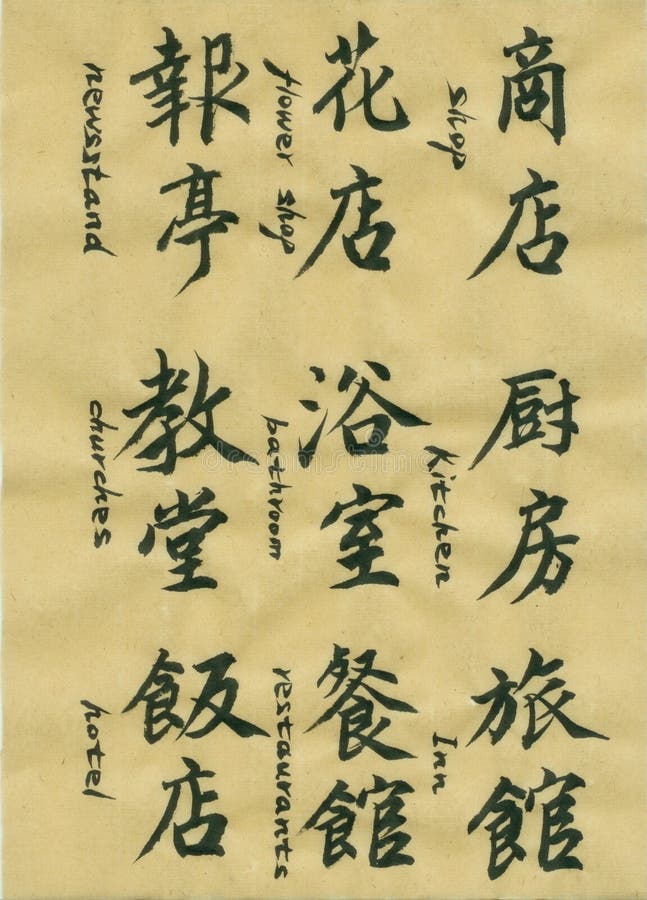 商店
shop
花店
flower shop
報亭
newsstand
厨房
Kitchen
浴室
bathroom
教堂
churches
旅館
Inn
餐館
restaurants
飯店
hotel